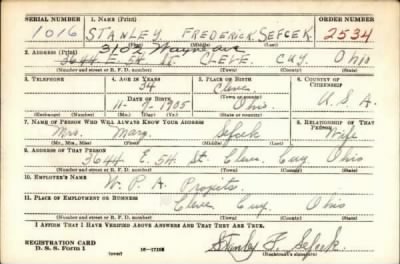 SERIAL NUMBER 1. NAME (Print) ORDER NUMBER
1016 STANLEY FREDERICK SEFCEK 2534
(First) (Middle) (Last)
3102 Wayne Ave
2. ADDRESS (Print)
3644 E. 54 St. CLEVE. CUY. Ohio
(Number and street or R. F. D. number) (Town) (County) (State)
3. TELEPHONE 4. AGE IN YEARS 5. PLACE OF BIRTH 6. COUNTRY OF CITIZENSHIP
34 Cleve
DATE OF BIRTH (Town or county)
11-9-1905 Ohio. U.S.A.
(Exchange) (Number) (Mo.) (Day) (Yr.) (State or country)
7. NAME OF PERSON WHO WILL ALWAYS KNOW YOUR ADDRESS 8. RELATIONSHIP OF THAT PERSON
Mrs. Mary Sefcek Wife
(Mr., Mrs., Miss) (First) (Middle) (Last)
9. ADDRESS OF THAT PERSON
3644 E. 54. St. Cleve. Cuy Ohio
(Number and street or R. F. D. number) (Town) (County) (State)
10. EMPLOYER'S NAME
W. P. A. Projects.
11. PLACE OF EMPLOYMENT OR BUSINESS
Cleve Cuy. Ohio
(Number and street or R. F. D. number) (Town) (County) (State)
I AFFIRM THAT I HAVE VERIFIED ABOVE ANSWERS AND THAT THEY ARE TRUE.
REGISTRATION CARD
D. S. S. Form 1 (over) Stanley F. Sefcek
(Registrant's signature)